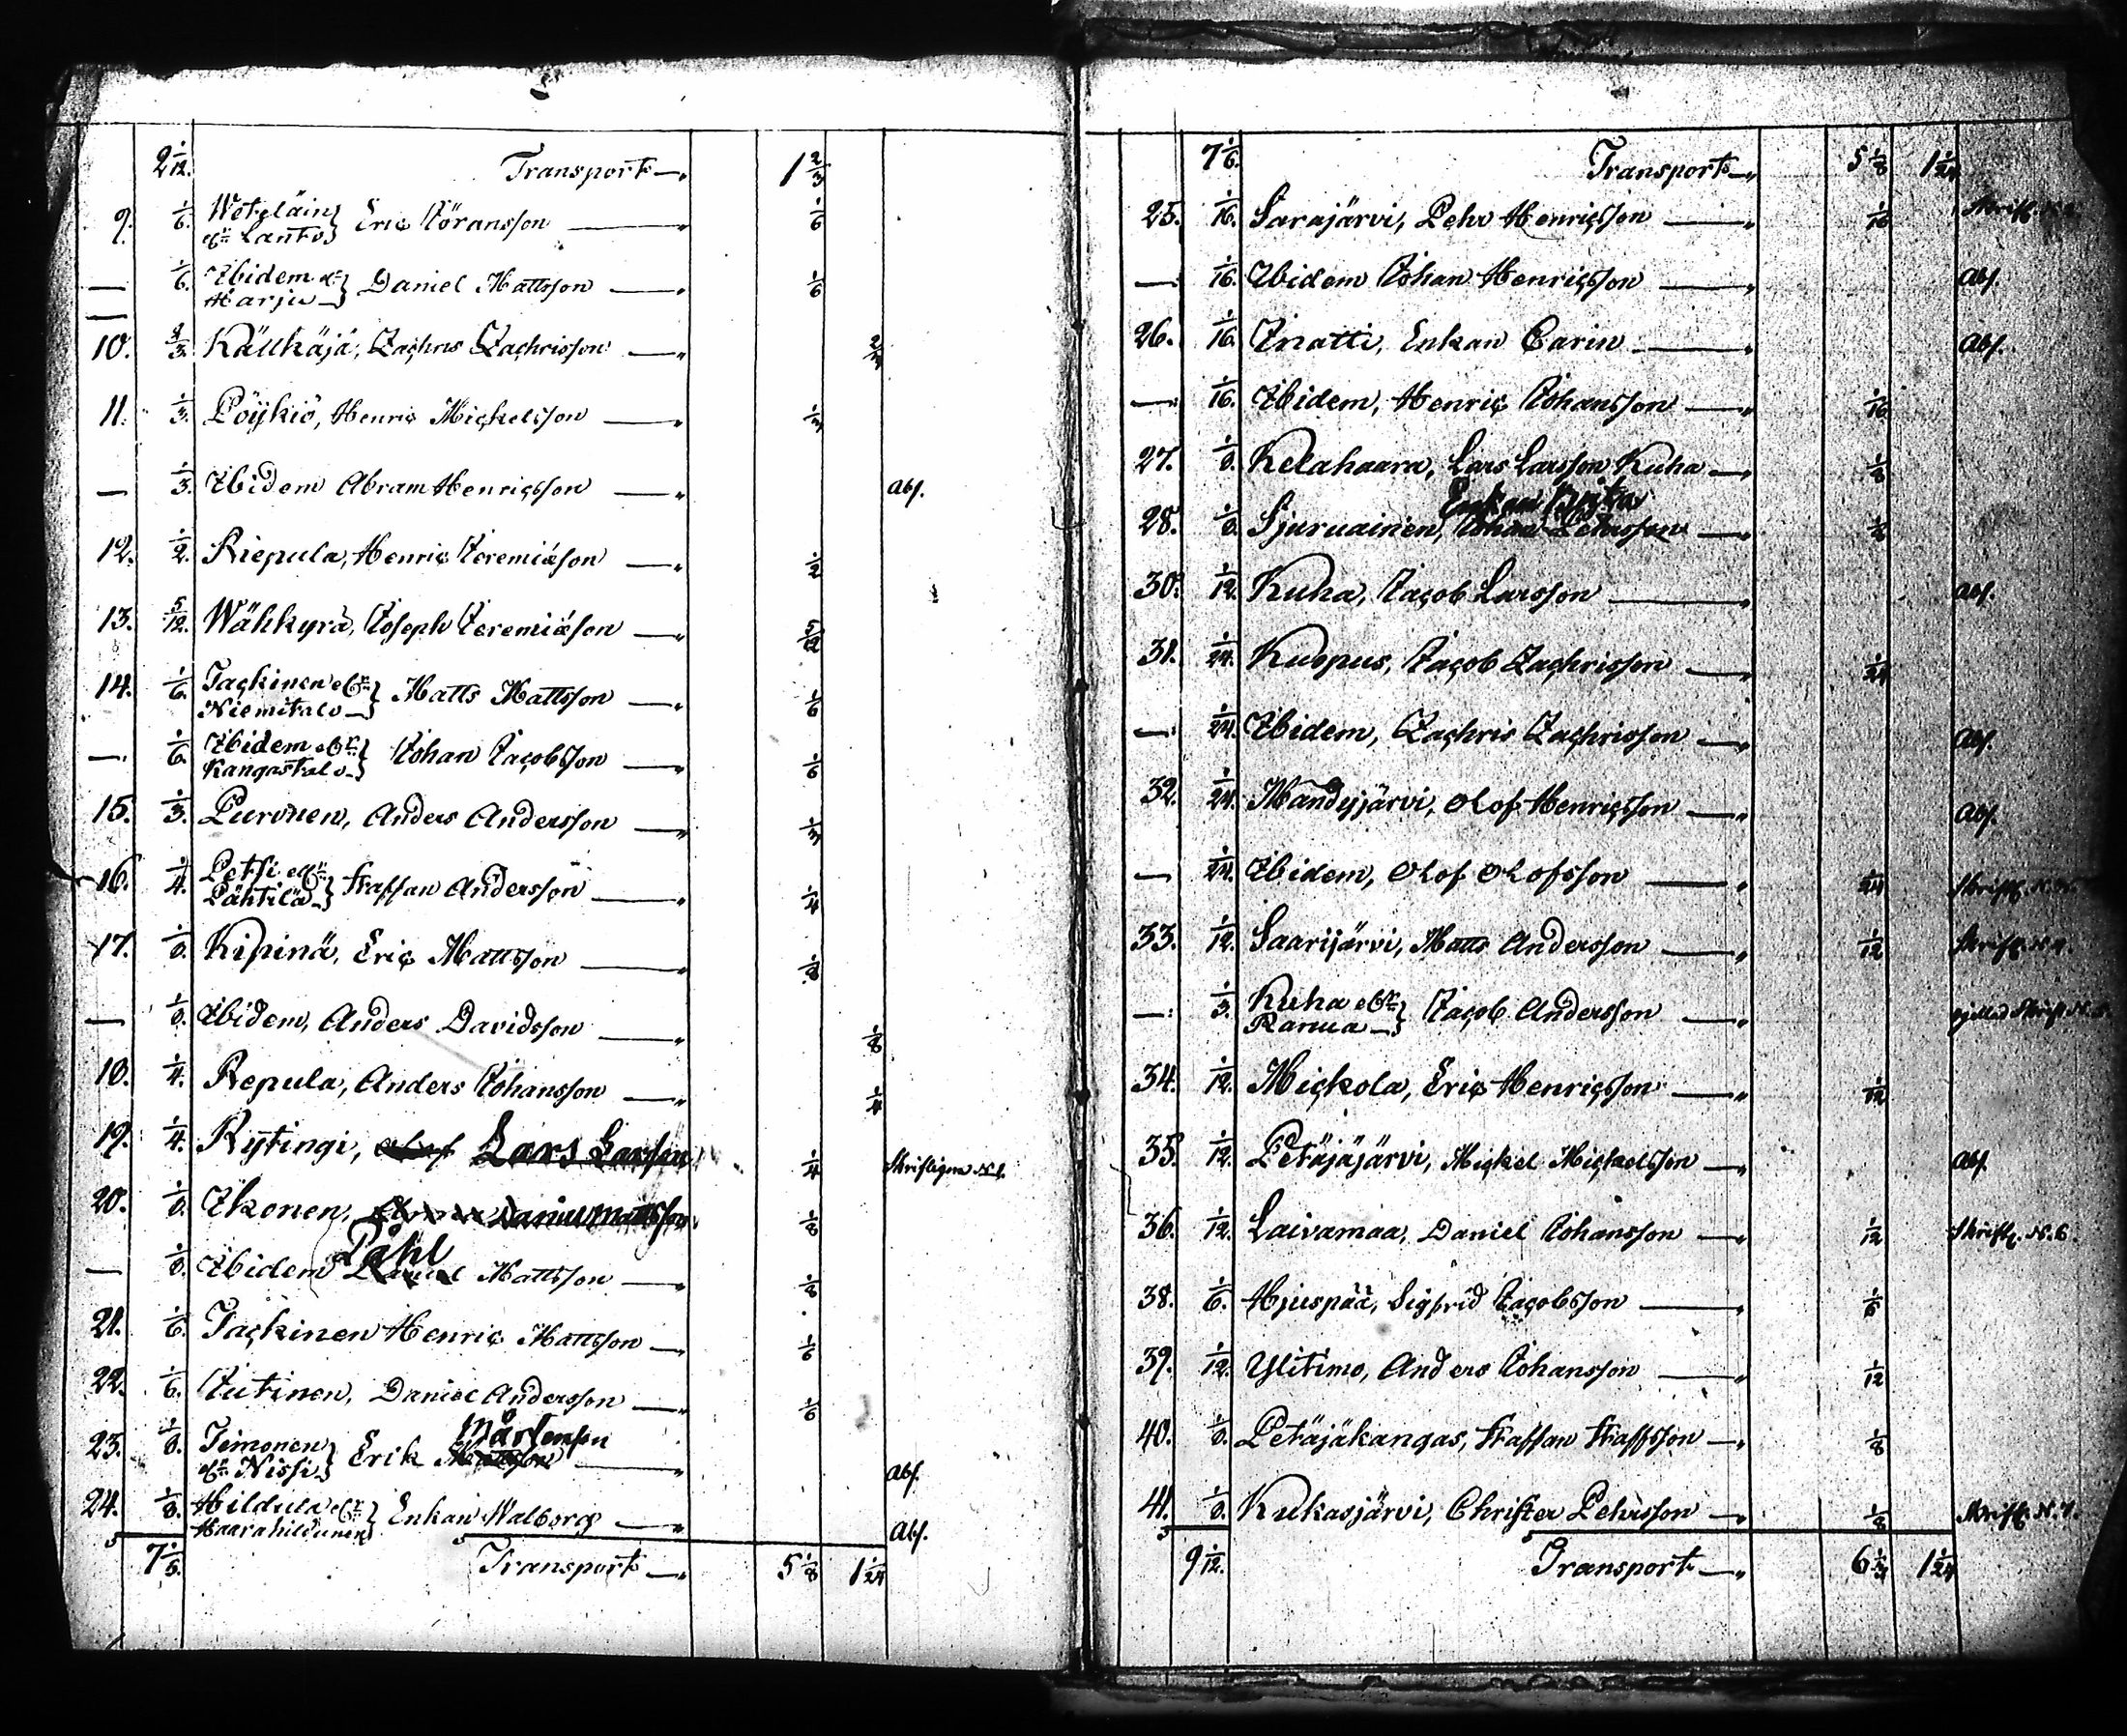 2 1/12. Transport 1 2/3
9. 1/6. Weteläin
el:r Lanto} Eric Jöransson 1/6
— 1/6. Ibidem el:r
Harju} Daniel Mattsson 1/6
10. 2/3. Källkäjä, Zachris Zachrisson 2/3
11. 1/3. Pöykiö, Henric Mickelsson 1/3
— 1/3. Ibidem Abram Henricsson Abs.
12. 1/2. Riepula, Henric Jeremiæson 1/2
13. 5/12. Wähkyrä, Joseph Jeremiæson 5/12
14. 1/6. Tackinen el:r
Niemitalo} Matts Mattsson 1/6
— 1/6. Ibidem el:r
Kangastalo} Johan Jacobsson 1/6
15. 1/3. Puronen, Anders Andersson 1/3
16. 1/4. Petsi el:r
Pähtilä} Staffan Andersson 1/4
17. 1/8. Kipinä, Eric Mattsson 1/8
— 1/8. Ibidem, Anders Davidsson 1/8
18. 1/4. Repula, Anders Johansson 1/4
19. 1/4. Rytingi, Olof Lars Larsson 1/4 Skrifteligen N.1.
20. 1/8. Ikonen, Daniel Mattsson 1/8
Påhl
— 1/8. Ibidem Daniel Mattsson 1/8
21. 1/6. Tackinen Henric Mattsson 1/6
22. 1/6. Jutinen, Daniel Andersson 1/6
Mårtensson
23. 1/8. Timonen
el:r Nissi} Erik Mattsson Abs.
24. 1/8. Hildula el:r
Haarahildunen} Enkan Walborg Abs.
7 1/6. Transport 5 1/8 1 1/24
7 1/6. Transport 5 1/8 1 1/24
25. 1/16. Sarajärvi, Pehr Henricsson 1/16
— 1/16. Ibidem Johan Henricsson Abs.
26. 1/16. Inatti, Enkan Carin Abs.
— 1/16. Ibidem, Henric Johansson 1/16
27. 1/8. Kelahaara, Lars Larsson Kuha 1/8
Enkan Brita
28. 1/8. Sjuruainen, Johan Pehrsson 1/8
30. 1/12. Kuha, Jacob Larsson Abs.
31. 1/24. Kuopus, Jacob Zachrisson 1/24
— 1/24. Ibidem, Zachris Zachrisson Abs.
32. 1/24. Mändyjärvi, Olof Henricsson Abs.
— 1/24. Ibidem, Olof Olofsson 1/24
33. 1/12. Saarijärvi, Matts Andersson 1/12
— 1/3. Kuha el:r
Ranua} Jacob Andersson
34. 1/12. Mickola, Eric Henricsson 1/12
35. 1/12. Petäjäjärvi, Mickel Michaelsson Abs.
36. 1/12. Laivamaa, Daniel Johansson 1/12 Skriftl. N.6.
38. 1/6. Hjuspää, Sigfrid Jacobsson 1/6
39. 1/12. Ylitimo, Anders Johansson 1/12
40. 1/8. Petäjäkangas, Staffan Staffsson 1/8
41. 1/8. Kukasjärvi, Christer Pehrsson 1/8 Skriftl. N.7.
9 1/12. Transport 6 1/3 1 1/24